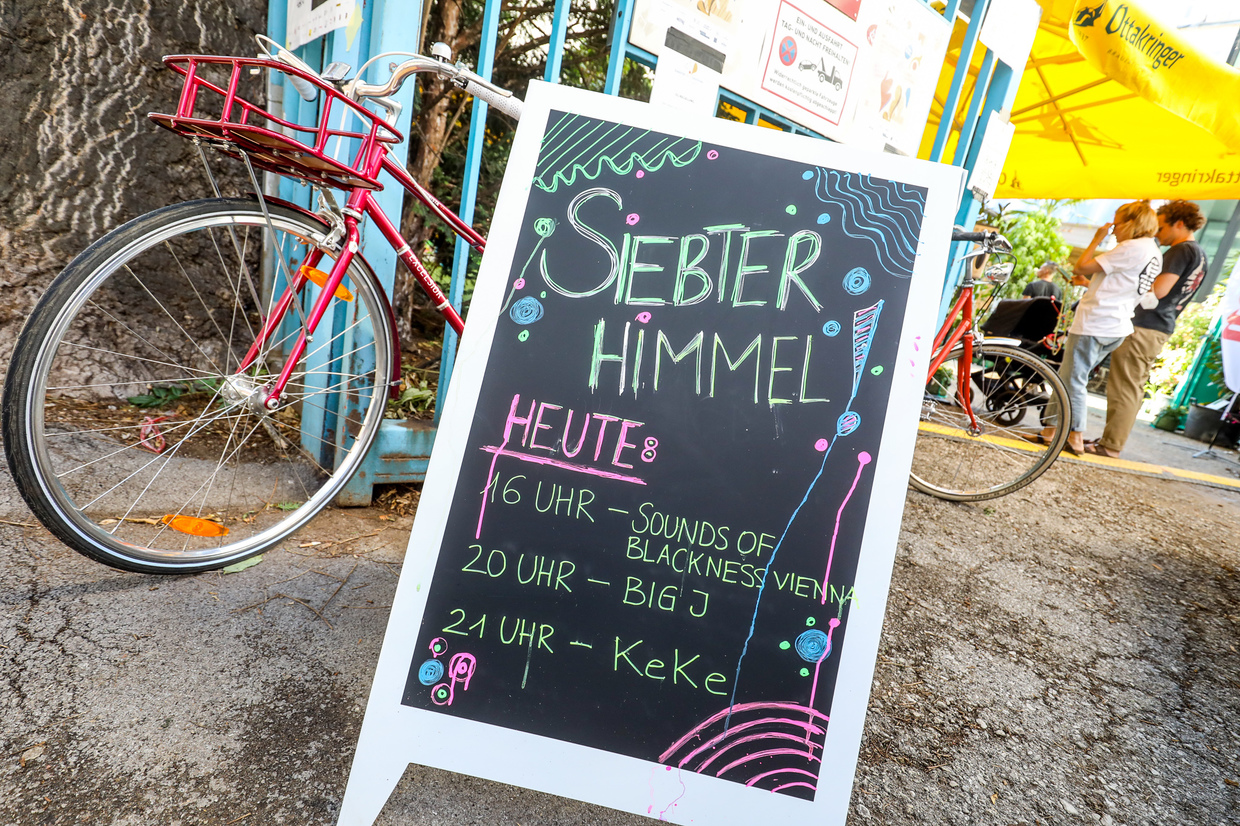 Ottakringer
EIN- UND AUSFAHRT
TAG- UND NACHT FREIHALTEN
Ottakringer
EXCELSIOR
SIEBTER
HIMMEL
HEUTE:
16 UHR – SOUNDS OF
BLACKNESS VIENNA
20 UHR – BIG J
21 UHR – KeKe